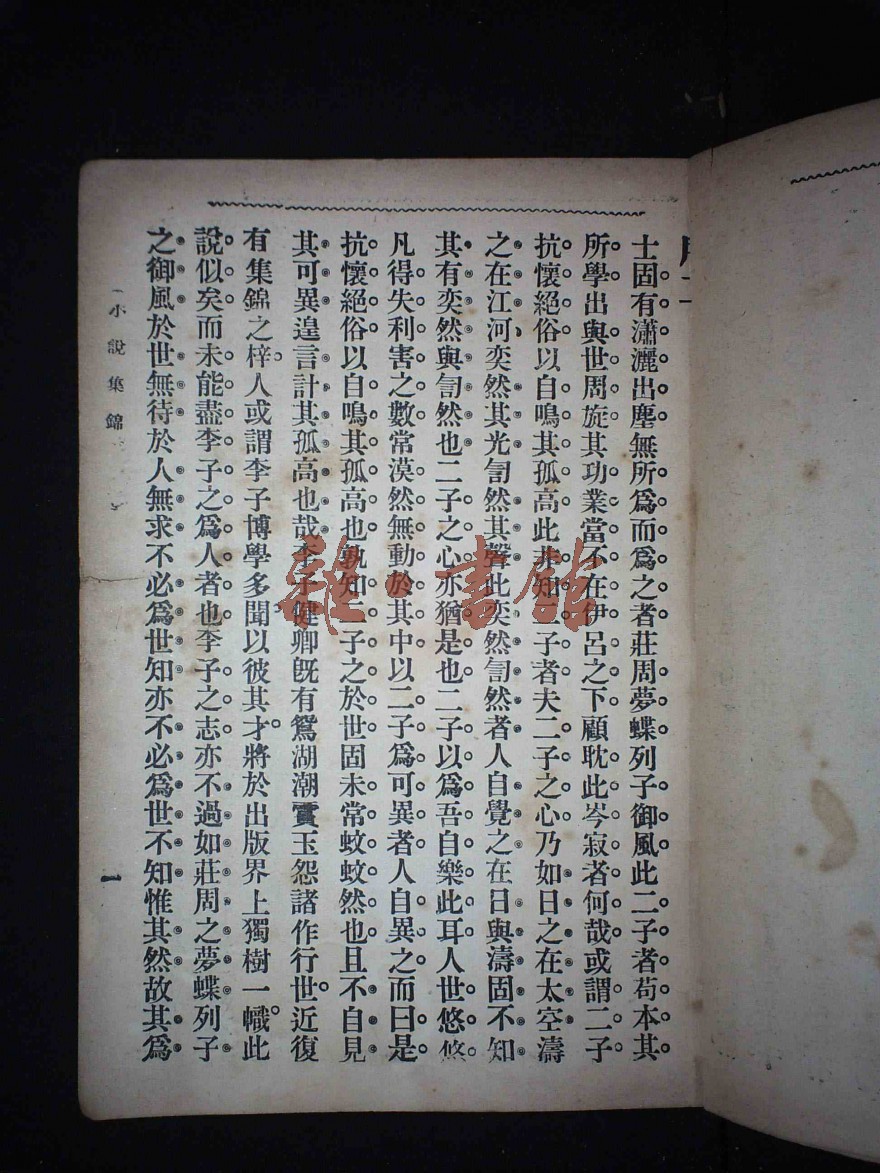 士固有瀟灑出塵無所爲而爲之者莊周夢蝶列子御風此二子者苟本其
所學出與世周旋其功業當不在伊呂之下顧耽此岑寂者何哉或謂二子
抗懷絕俗以自鳴其孤高此非知二子者夫二子之心乃如日之在太空濤
之在江河奕然其光訇然其聲此奕然訇然者人自覺之在日與濤固不知
其有奕然與訇然也二子之心亦猶是也二子以爲吾自樂此耳人世悠悠
凡得失利害之數常漠然無動於其中以二子爲可異者人自異之而曰是
抗懷絕俗以自鳴其孤高也孰知二子之於世固未常蚊蚊然也且不自見
其可異遑言計其孤高也哉李子健卿旣有鴛湖潮賣玉怨諸作行世近復
有集錦之梓人或謂李子博學多聞以彼其才將於出版界上獨樹一幟此
說似矣而未能盡李子之爲人者也李子之志亦不過如莊周之夢蝶列子
之御風於世無待於人無求不必爲世知亦不必爲世不知惟其然故其爲
小說集錦
一
雜·書館